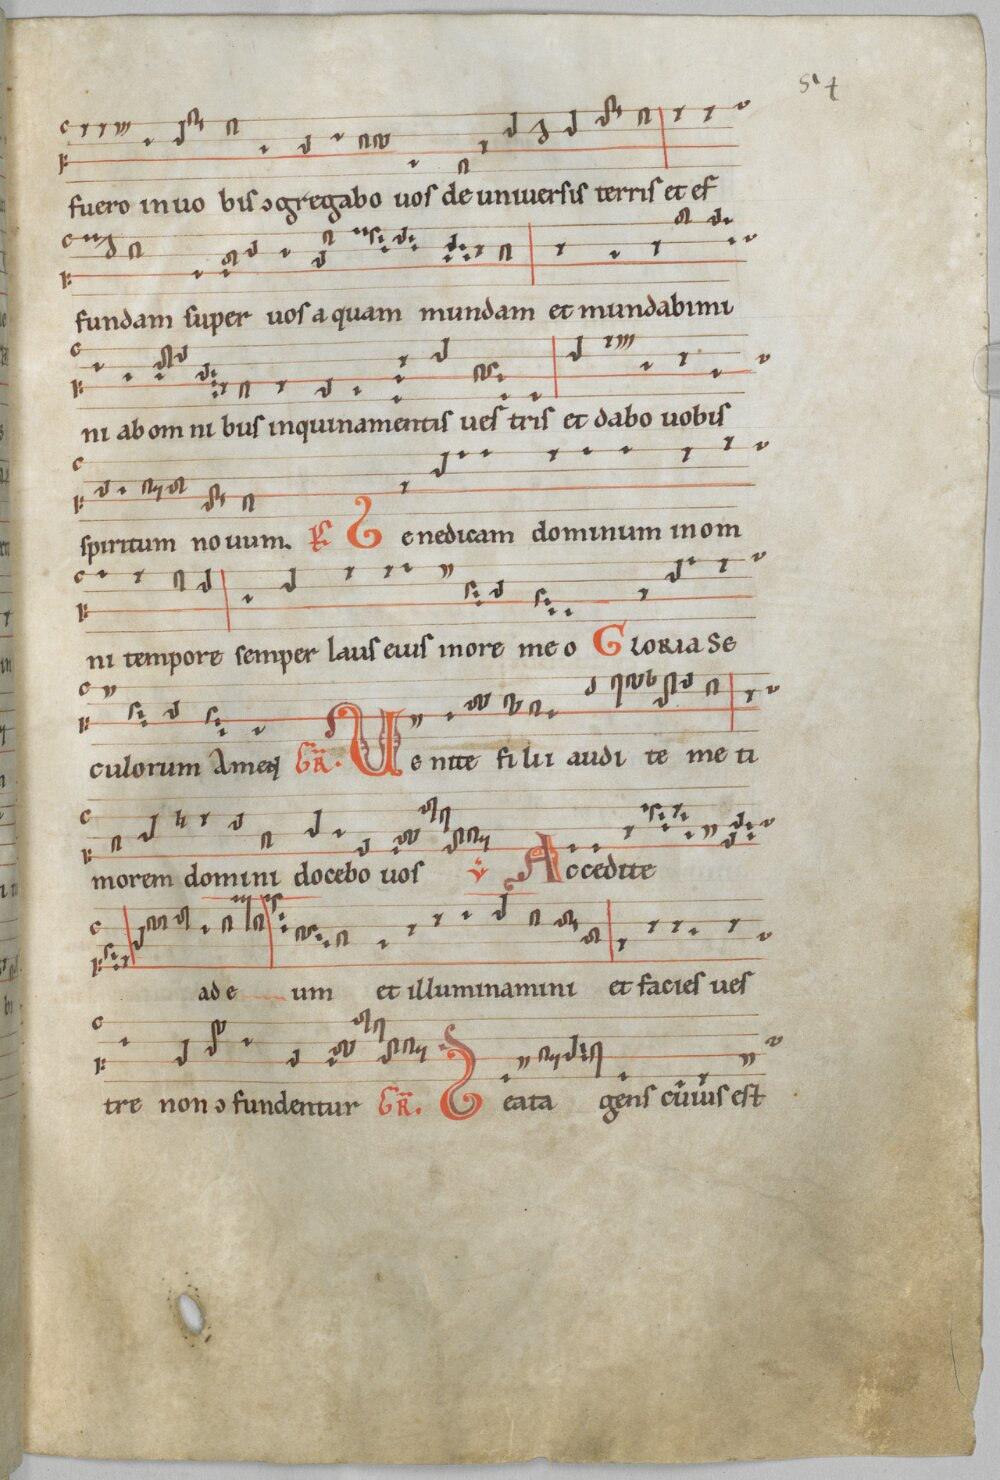 54
fuero in uo bis ɔgregabo uos de uniuersis terris et ef
fundam super uos a quam mundam et mundabimi
ni ab om ni bus inquinamentis ues tris et dabo uobis
spiritum no uum. Benedicam dominum in om
ni tempore semper laus eius in ore me o GLORIA Se
culorum Amen GR. Ue nite fi lii audi te me ti
morem domini docebo uos V Accedite
ad e um et illuminamini et facies ues
tre non ɔfundentur GR. Beata gens cuius est